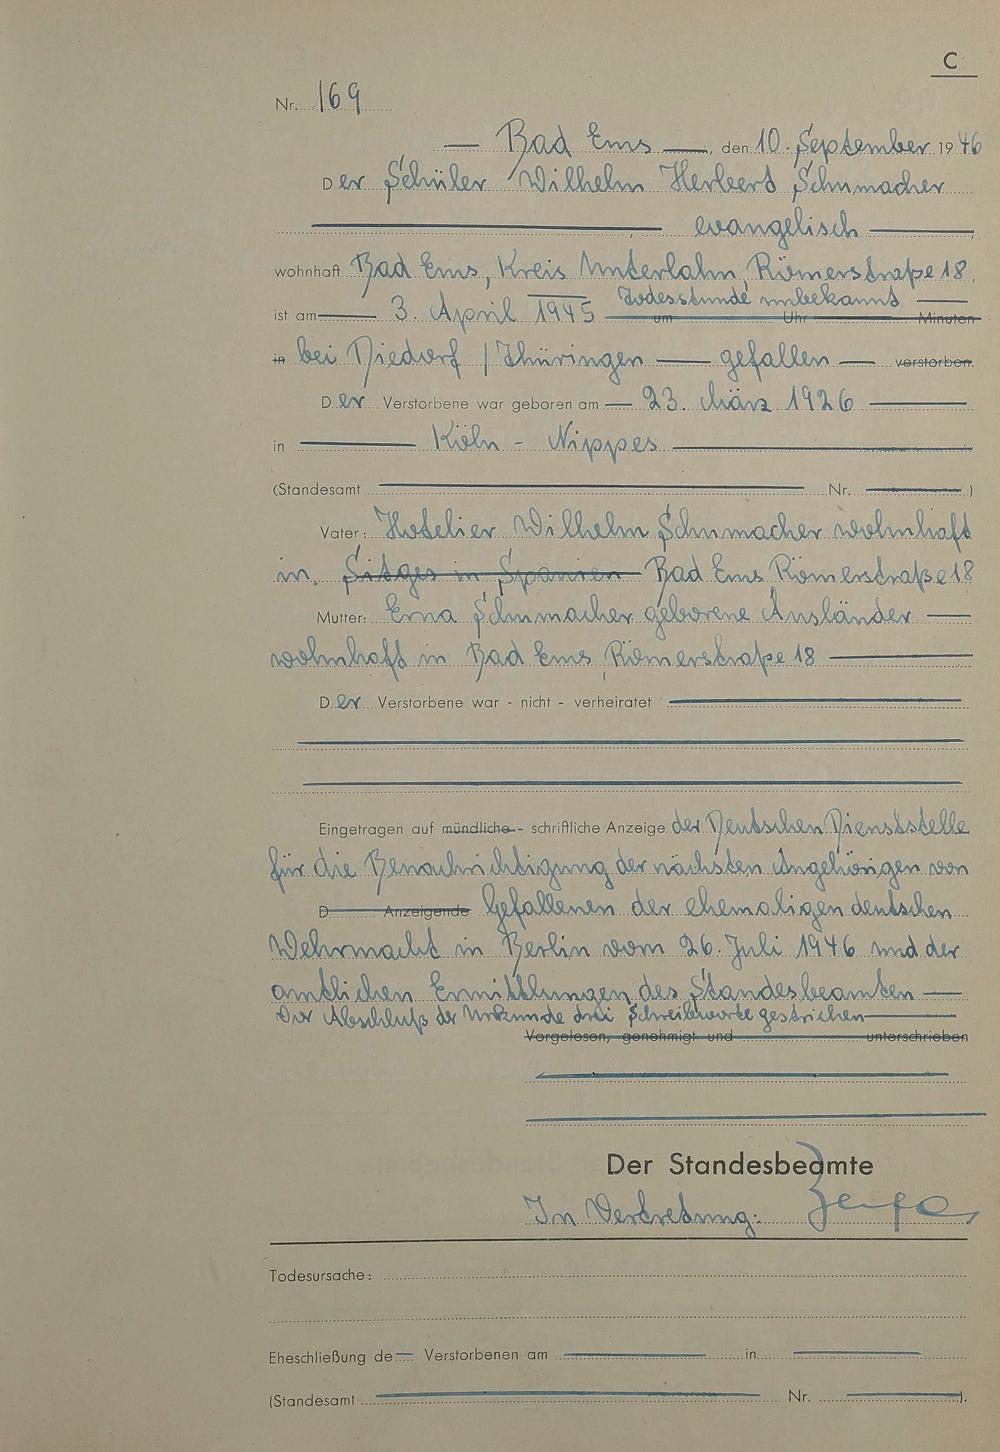 C
Nr. 169
Bad Ems, den 10. September 1946
Der Schüler Wilhelm Herbert Schumacher
evangelisch
wohnhaft Bad Ems, Kreis Unterlahn, Römerstraße 18,
Todesstunde unbekannt
ist am 3. April 1945 um Uhr Minuten
in bei Diedorf / Thüringen gefallen verstorben.
Der Verstorbene war geboren am 23. März 1926
in Köln - Nippes
(Standesamt Nr. )
Vater: Hotelier Wilhelm Schumacher wohnhaft
in Sitges in Spanien Bad Ems Römerstraße 18
Mutter: Erna Schumacher geborene Ausländer
wohnhaft in Bad Ems, Römerstraße 18
Der Verstorbene war - nicht - verheiratet
Eingetragen auf mündliche - schriftliche Anzeige der Deutschen Dienststelle
für die Benachrichtigung der nächsten Angehörigen von
D Anzeigende Gefallenen der ehemaligen deutschen
Wehrmacht in Berlin vom 26. Juli 1946 und der
amtlichen Ermittlungen des Standesbeamten
Der Abschluß der Urkunde drei Schreibworte gestrichen
Vorgelesen, genehmigt und unterschrieben
Der Standesbeamte
In Vertretung:
Todesursache:
Eheschließung de Verstorbenen am in
(Standesamt Nr. ).